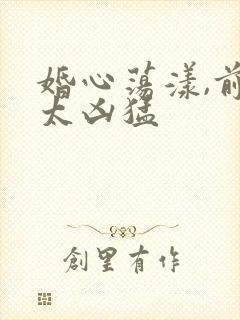 婚心蕩漾,前
太凶猛
創里有作